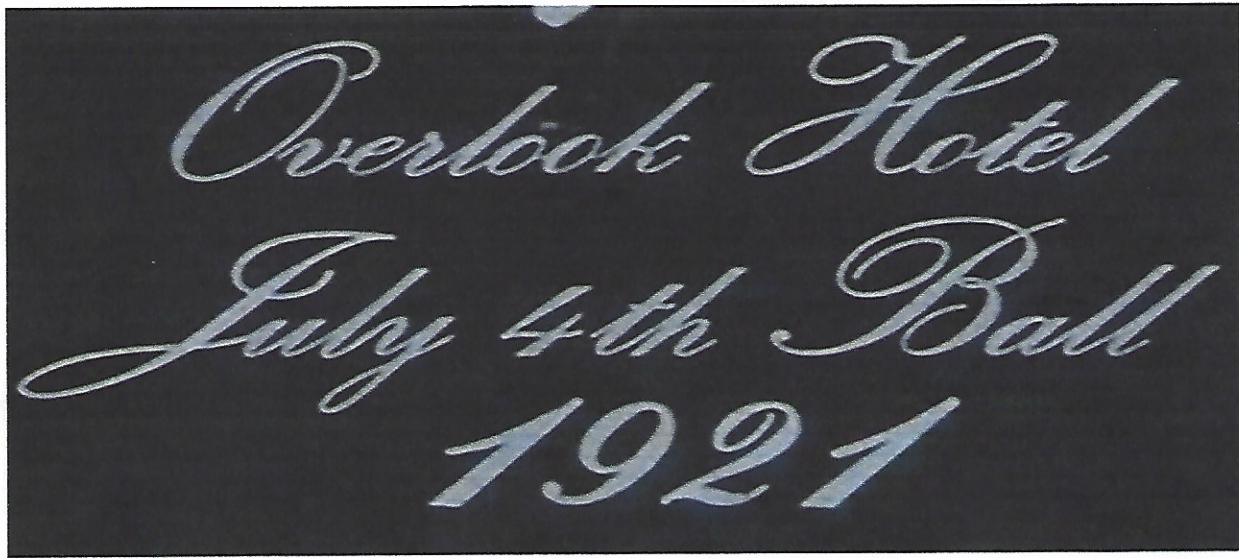 Overlook Hotel
July 4th Ball
1921